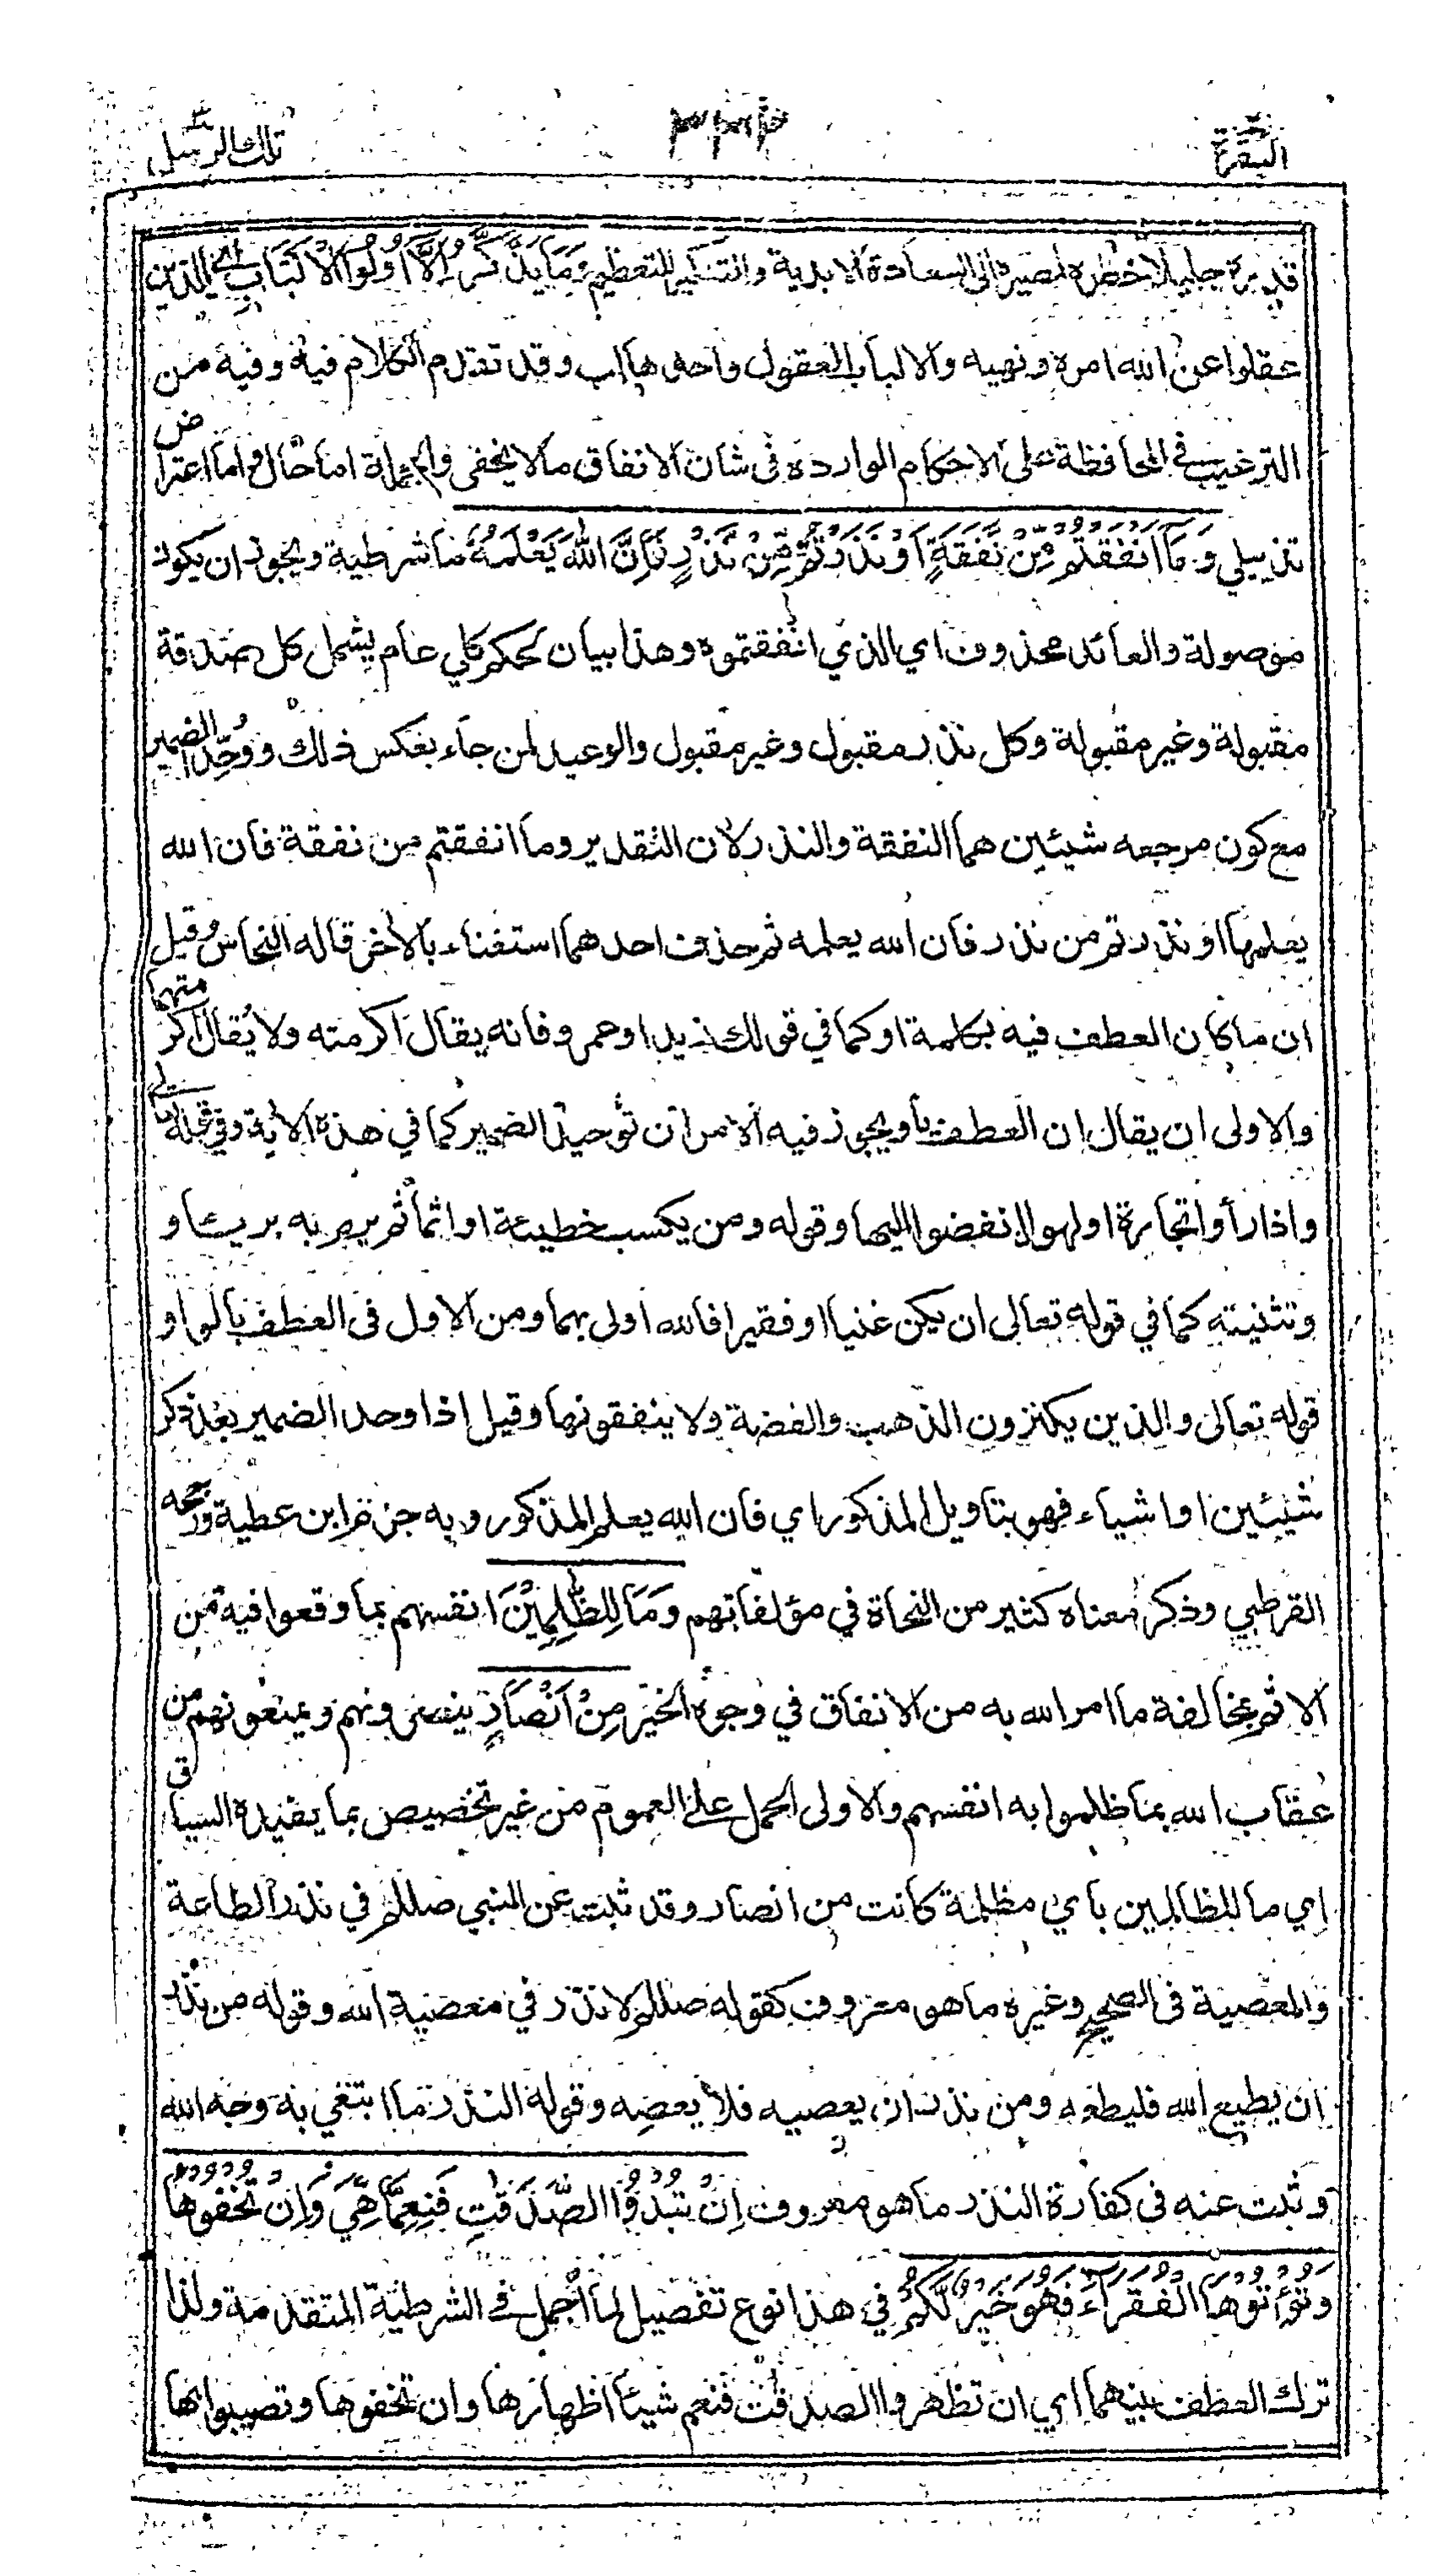 البقرة
تلك الرسل
قدره جليلا خطره لمصيره الى السعادة الابدية والتنكير للتعظيم وَمَا يَذَّكَّرُ إِلَّا أُولُوا الْأَلْبَابِ اي الذين
عقلوا عن الله امره ونهيه والالباب العقول واحدها لب وقد تقدم الكلام فيه وفيه من
الترغيب في المحافظة على الاحكام الواردة في شان الانفاق مالا يخفى والجملة اما حال واما اعتراض
تذييلي وَمَا أَنْفَقْتُمْ مِّنْ نَّفَقَةٍ أَوْ نَذَرْتُمْ مِّنْ نَّذْرٍ فَإِنَّ اللهَ يَعْلَمُهُ ما شرطية ويجوز ان يكون
موصولة والعائد محذوف اي الذي انفقتموه وهذا بيان لحكم كلي عام يشمل كل صدقة
مقبولة وغير مقبولة وكل نذر مقبول وغير مقبول والوعيد لمن جاء بعكس ذلك ووُحِّد الضمير
مع كون مرجعه شيئين هما النفقة والنذر لان التقدير وما انفقتم من نفقة فان الله
يعلمها او نذرتم من نذر فان الله يعلمه ثم حذف احدهما استغناء بالاخر قاله النحاس وقيل
ان ما كان العطف فيه بكلمة او كما في قولك زيد او عمرو فانه يقال اكرمته ولا يقال اكرمتهما
والاولى ان يقال ان العطف باو يجوز فيه الامران توحيد الضمير كما في هذه الاية وفي قوله تعالى
واذا رأوا تجارة او لهوا لانفضوا اليها وقوله ومن يكسب خطيئة او اثما ثم يرم به بريئا و
وتثنيته كما في قوله تعالى ان يكن غنيا او فقيرا فالله اولى بهما ومن الاول في العطف بالواو
قوله تعالى والذين يكنزون الذهب والفضة ولا ينفقونها وقيل اذا وحد الضمير بعد ذكر
شيئين او اشياء فهو بتاويل المذكور اي فان الله يعلم المذكور وبه جزم ابن عطية ورجحه
القرطبي وذكر معناه كثير من النحاة في مؤلفاتهم وَمَا لِلظّٰلِمِيْنَ انفسهم بما وقعوا فيه من
الاثم بمخالفة ما امر الله به من الانفاق في وجوه الخير مِنْ أَنْصَارٍ ينصرونهم ويمنعونهم من
عقاب الله بما ظلموا به انفسهم والاولى الحمل على العموم من غير تخصيص بما يفيده السياق
اي ما للظالمين باي مظلمة كانت من انصار وقد ثبت عن النبي صللم في نذر الطاعة
والمعصية في الصحيح وغيره ما هو معروف كقوله صللم لا نذر في معصية الله وقوله من نذر
ان يطيع الله فليطعه ومن نذر ان يعصيه فلا يعصه وقوله النذر ما ابتغي به وجه الله
وثبت عنه في كفارة النذر ما هو معروف إِنْ تُبْدُوا الصَّدَقٰتِ فَنِعِمَّا هِيَ وَإِنْ تُخْفُوهَا
وَتُؤْتُوهَا الْفُقَرَاءَ فَهُوَ خَيْرٌ لَّكُمْ في هذا نوع تفصيل لما أجمل في الشرطية المتقدمة ولذا
ترك العطف بينهما اي ان تظهروا الصدقت فنعم شيئا اظهارها وان تخفوها وتصيبوا بها